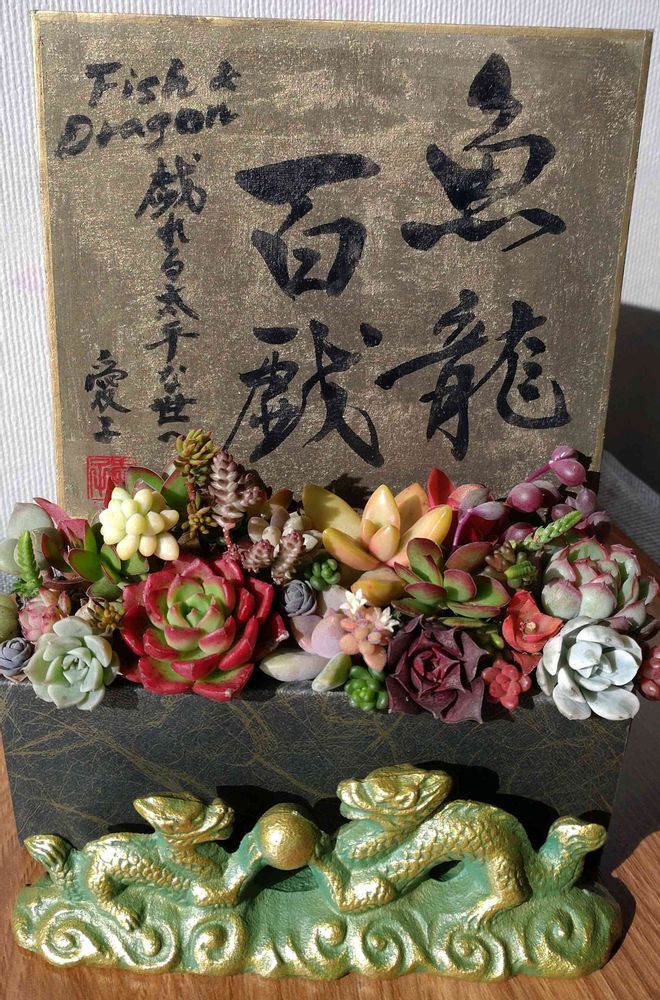 Fish &
Dragon
魚龍
百戯
戯れる太平な世へ
愛子